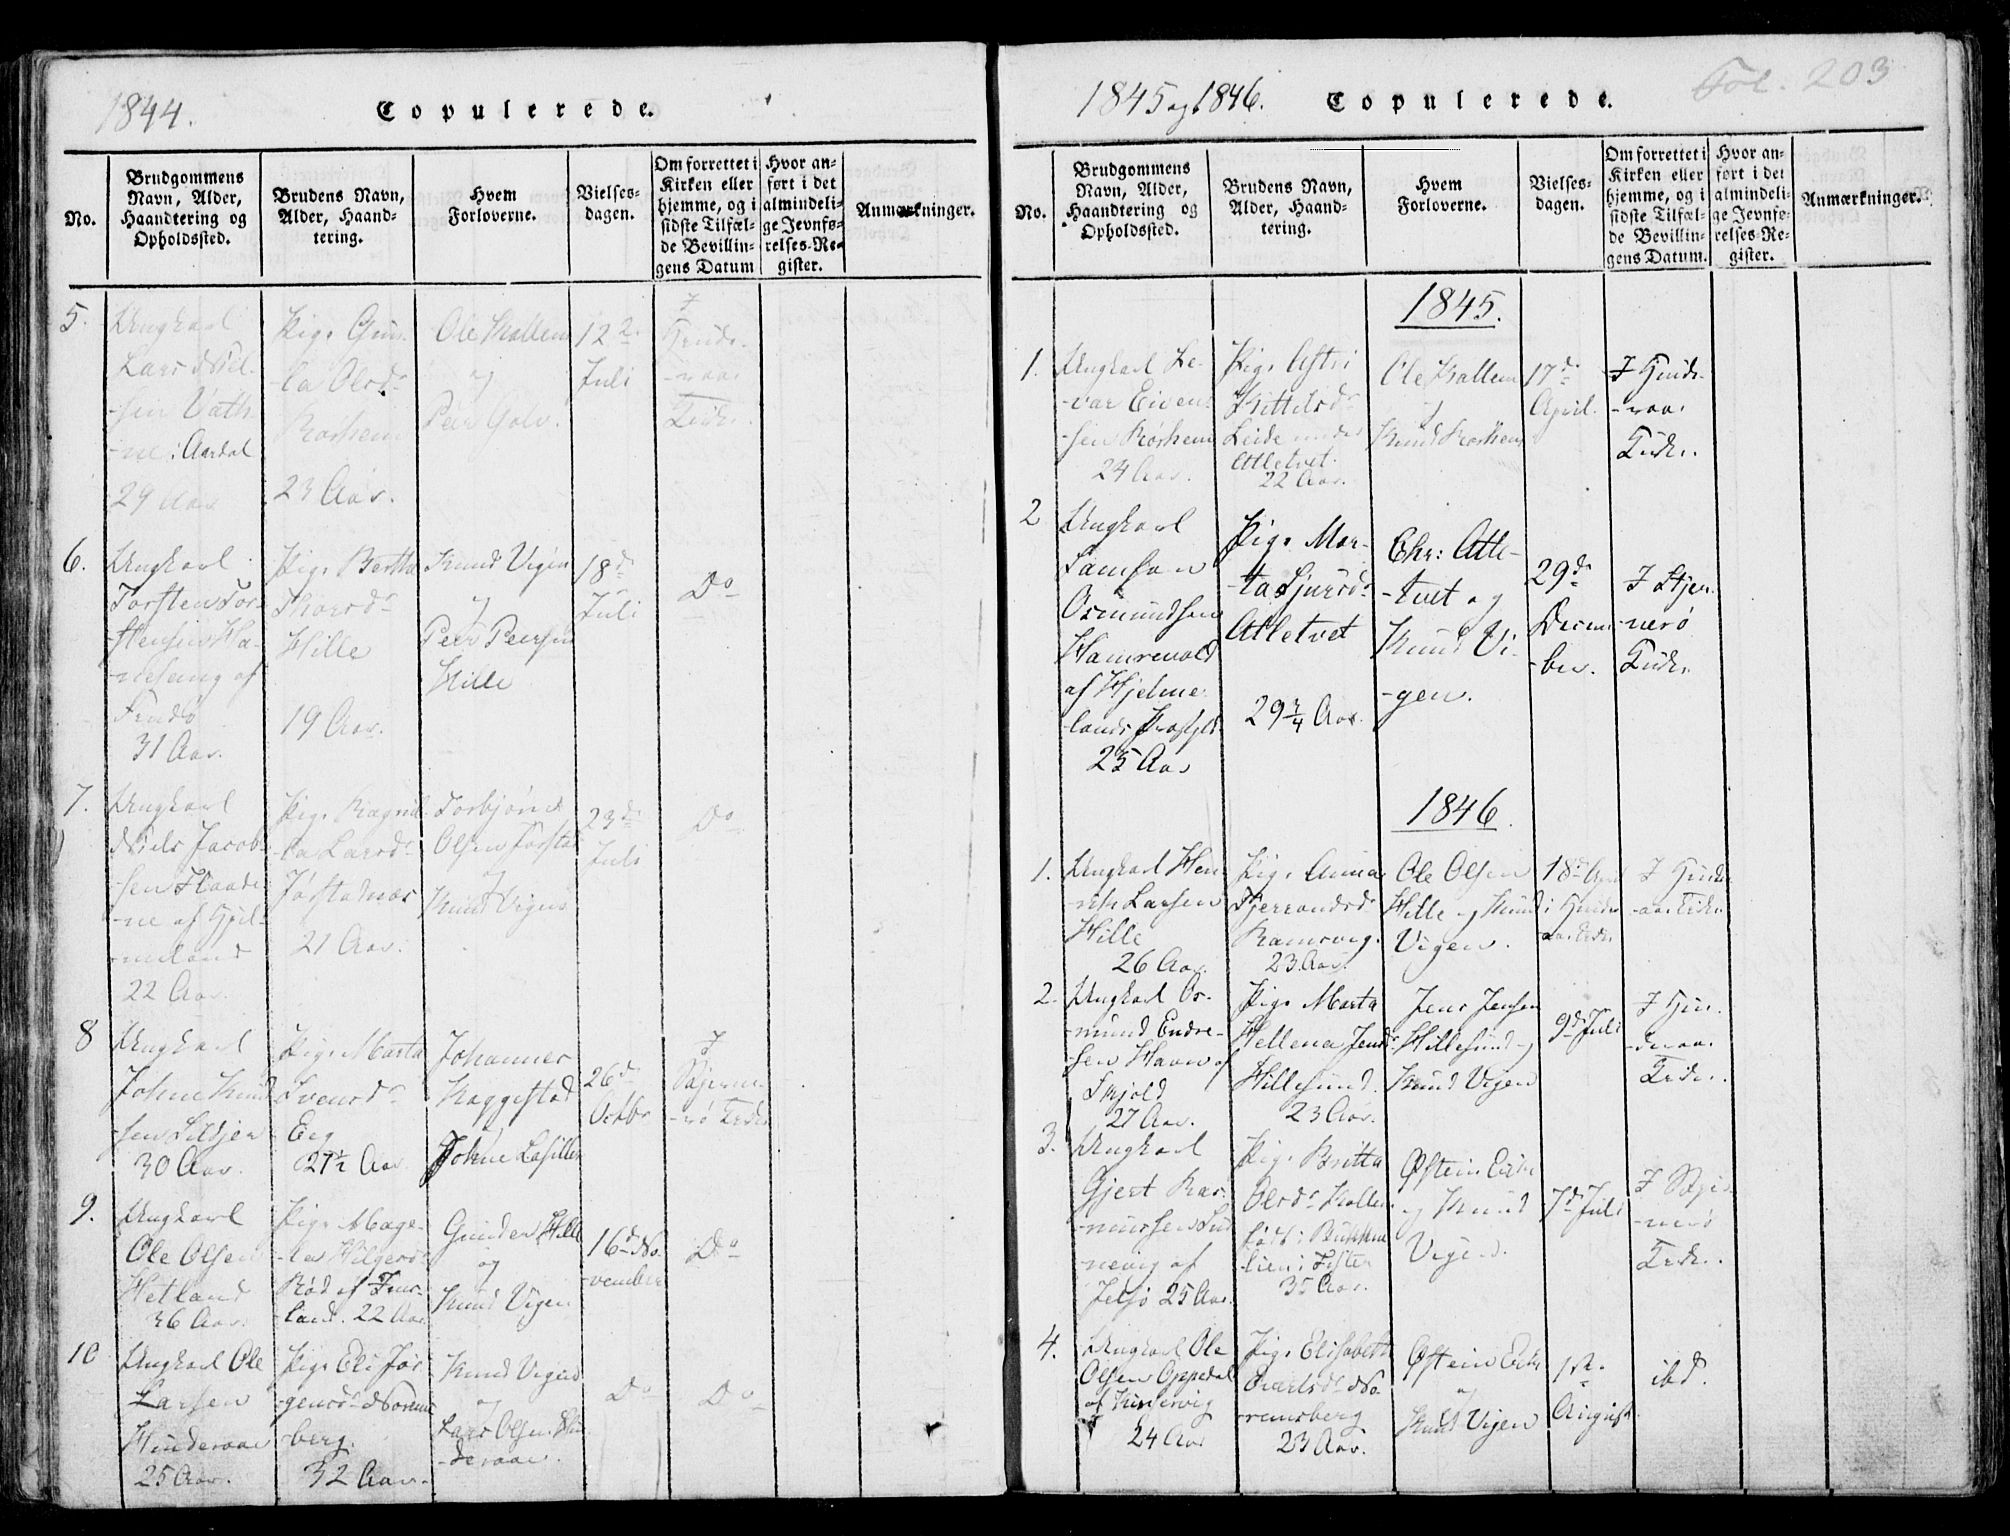 1844.
Copulerede.
No.
Brudgommens
Navn, Alder,
Haandtering og
Opholdssted.
Brudens Navn,
Alder, Haand-
tering.
Hvem
Forloverne.
Vielses-
dagen.
Om forrettet i
Kirken eller
hjemme, og i
sidste Tilfæl-
de Bevillin-
gens Datum
Hvor an-
ført i det
almindeli-
ge Jevnfø-
relses-Re-
gister.
Anmærkninger.
5.
Ungkarl
Lars Niel-
-sen Vath-
-ne i Aardal
29 Aar
Pige Gun-
-la Olsdr
Roshem
23 Aar.
Ole Kallem
og
Peer Golv.
12te
Juli
I
Hinde-
-raae
Kirke.
6.
Ungkarl
Torsten Tor-
-stensen Ha-
af
Findø
31 Aar.
Pige Bertha
Thorsdr
Hille
19 Aar.
Knud Vigen
og
Peer Peersen
Hille
18de
Juli
Do
7.
Ungkarl
Niels Jacob-
-sen Flaade-
-ne af Hjel-
-meland
22 Aar.
Pige Ragnil-
-la Larsdr
Jøstadnæs
21 Aar.
Torbjørn
Olsen Jøstad
og
Knud Vigen
23de
Juli
Do
8
Ungkarl
Johne Knud-
-sen
30 Aar.
Pige Marta
Svensdr
Eeg
27½ Aar
Johannes
Haggestad
Johne
26de
Octbr
I
Skjerne-
-rø Kirke
9.
Ungkarl
Ole Olsen
Hetland
36 Aar.
Pige Mage-
-la
Rød af Im-
-land. 22 Aar
Gunder Hille
og
Knud Vigen
16de No-
-vember
Do
10
Ungkarl Ole
Larsen
Hinderaae
25 Aar.
Pige Eli Jør-
-gensdr Norene-
-berg.
32 Aar.
Knud Vigen
og
Lars Olsen Hin-
-deraae.
Do
Do
1845 og 1846.
Copulerede.
Fol. 203
No.
Brudgommens
Navn, Alder,
Haandtering og
Opholdssted.
Brudens Navn,
Alder, Haand-
tering.
Hvem
Forloverne.
Vielses-
dagen.
Om forrettet i
Kirken eller
hjemme, og i
sidste Tilfæl-
de Bevillin-
gens Datum.
Hvor an-
ført i det
almindeli-
ge Jevnfø-
relses-Re-
gister.
Anmærkninger.
1845.
1.
Ungkarl Le-
-var Eiven-
-sen Røshem
24 Aar.
Pige Astri
Kittelsdr
Leide under
Atletvet.
22 Aar.
Ole Kallem
og
Knud Roshem
17de
April.
I Hinde-
-raae
Kirke.
2
Ungkarl
Samson
Osmundsen
Hamrevold
af Hjelme-
-lands Præstgld
25 Aar
Pige Mar-
-ta Sjursdr
Atletvet
29¾ Aar.
Chr: Atle-
-tvet og
Knud Vi-
-gen.
29de
Decem-
-ber.
I Skjer-
-nerø
Kirke
1846.
1.
Ungkarl Hen-
-rik Larsen
Hille
26 Aar.
Pige Anna
Tjerrandsdr
Ramsvig.
23 Aar.
Ole Olsen
Hille og Knud
Vigen.
18de April
i Hinder-
aae Kirke
I Hinder-
-aae Kirke
2.
Ungkarl Os-
-mund Endre-
-sen Havn af
Skjold
27 Aar.
Pige Marta
Hellena Jensdr
Hillesund.
23 Aar.
Jens Jensen
Hillesund og
Knud Vigen
9de Juli
I Hin-
-deraae
Kirke.
3.
Ungkarl
Gjert Ras-
-mussen Sud-
-nevig af
Jelsø 25 Aar.
Pige Britta
Olsdr Kallem
født i Bukken
-lien i Fister
35 Aar.
Østein Eike
og Knud
Vigen.
7de Juli
I Skjer-
-nerø
Kirke.
4.
Ungkarl Ole
Olsen Oppedal
af Kinservig
24 Aar
Pige Elisabeth
No-
-rensberg
23 Aar.
Østein Eike
og
Knud Vigen
1ste
August.
ibd.